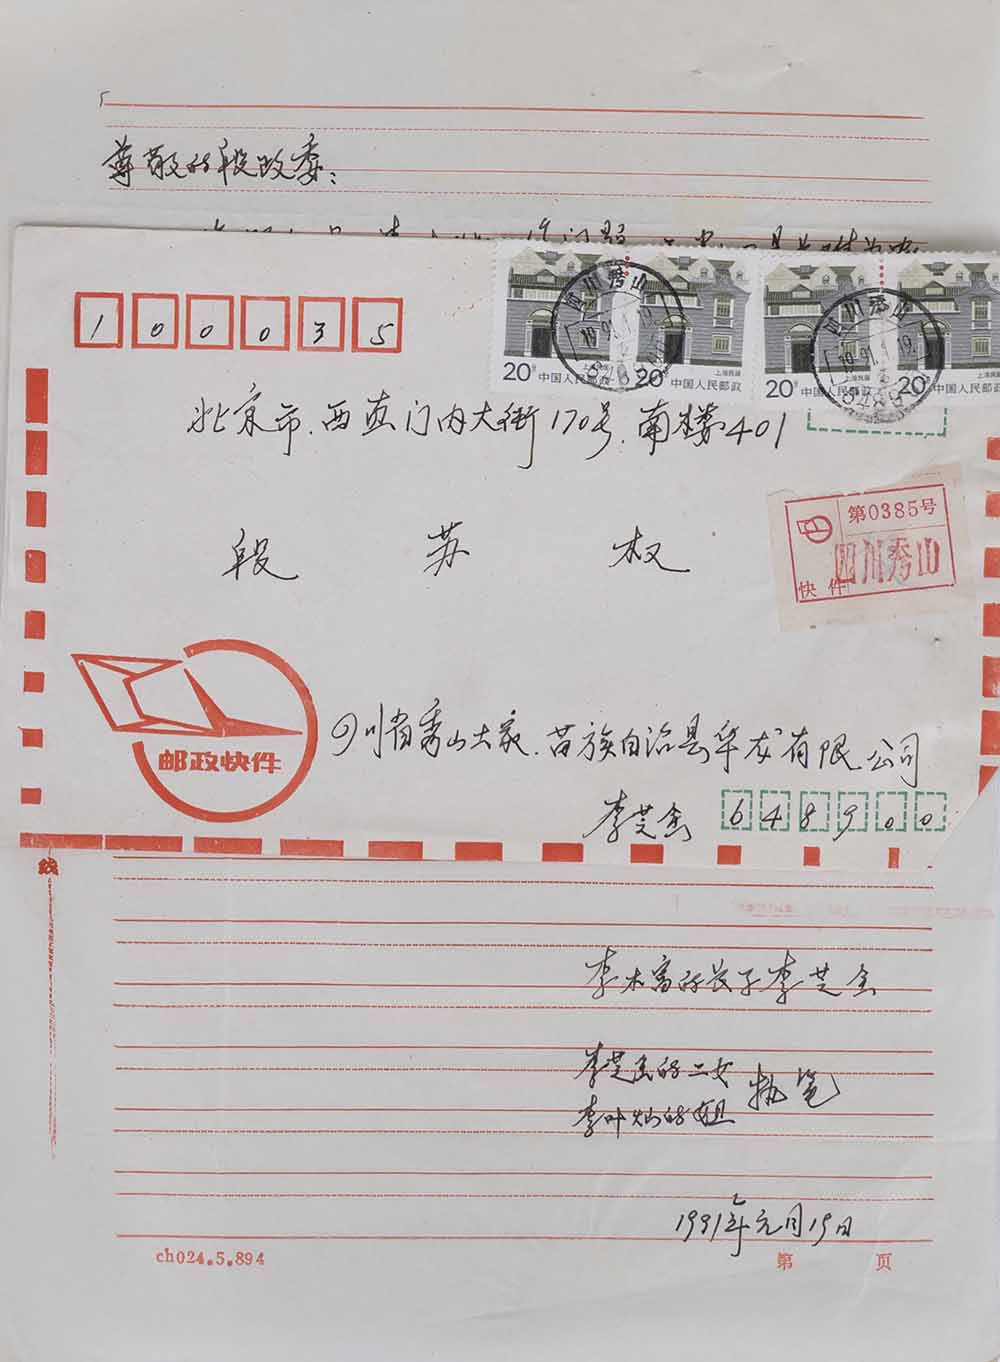 尊敬的段政委：
100035
四川秀山
19.91.1.19.
四川秀山
19.91.1.19.
上海民居
20分 中国人民邮政
上海民居
20分 中国人民邮政
上海民居
20分 中国人民邮政
上海民居
20分 中国人民邮政
北京市.西直门内大街170号.南楼401
段 苏 权
第0385号
四川秀山
快件
四川省秀山土家.苗族自治县华龙有限公司
邮政快件
李芝金 648900
线
李木富的长子李芝金
李芝金的二女
李叶灿的姐 执笔
1991年元月19日
ch024.5.894
第 页